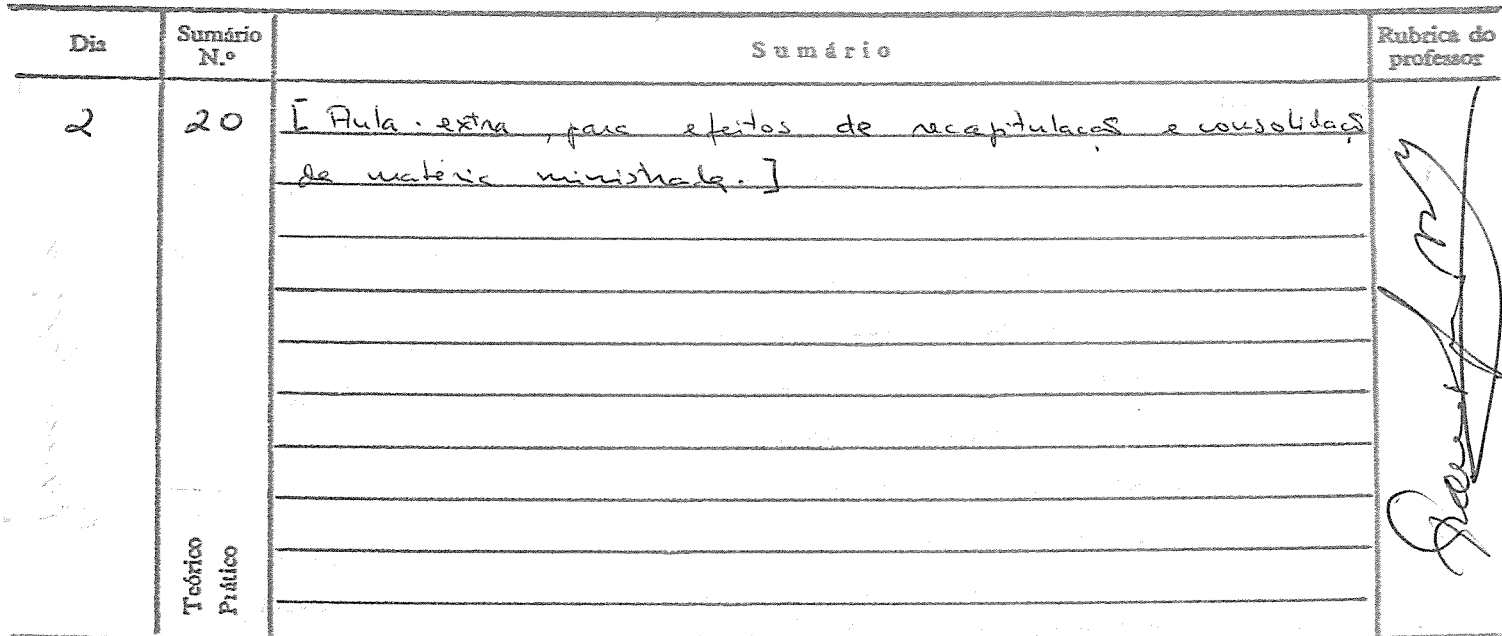 Dia
Sumário N.º
Sumário
Rubrica do professor
2
20
[ Aula extra, para efeitos de recapitulação e consolidação
da matéria ministrada. ]
Teórico
Prático